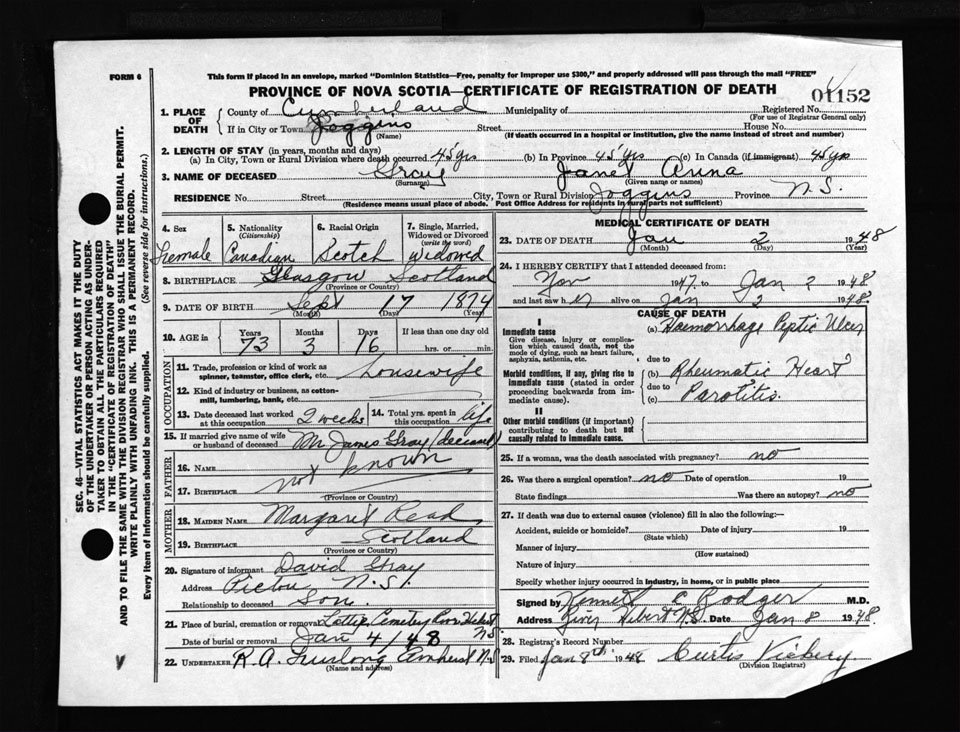 FORM 6
This form if placed in an envelope, marked "Dominion Statistics—Free, penalty for improper use $300," and properly addressed will pass through the mail "FREE"
PROVINCE OF NOVA SCOTIA—CERTIFICATE OF REGISTRATION OF DEATH
01152
1. PLACE OF DEATH County of Cumberland Municipality of Registered No.
(For use of Registrar General only)
If in City or Town Joggins Street House No.
(Name) (If death occurred in a hospital or institution, give the name instead of street and number)
2. LENGTH OF STAY (in years, months and days)
(a) In City, Town or Rural Division where death occurred 45 yrs (b) In Province 45 yrs (c) In Canada (if immigrant) 45 yrs
3. NAME OF DECEASED Gray Janet Anna
(Surname) (Given name or names)
RESIDENCE No. Street City, Town or Rural Division Joggins Province N.S.
(Residence means usual place of abode. Post Office Address for residents in rural parts not sufficient)
4. Sex Female
5. Nationality (Citizenship) Canadian
6. Racial Origin Scotch
7. Single, Married, Widowed or Divorced (write the word) Widowed
8. BIRTHPLACE Glasgow Scotland
(Province or Country)
9. DATE OF BIRTH Sept 17 1874
(Month) (Day) (Year)
10. AGE in Years 73 Months 3 Days 16 If less than one day old hrs. or min.
OCCUPATION
11. Trade, profession or kind of work as spinner, teamster, office clerk, etc. Housewife
12. Kind of industry or business, as cotton-mill, lumbering, bank, etc.
13. Date deceased last worked at this occupation 2 weeks 14. Total yrs. spent in this occupation life
15. If married give name of wife or husband of deceased Mr James Gray (deceased)
FATHER
16. NAME not known
17. BIRTHPLACE
(Province or Country)
MOTHER
18. MAIDEN NAME Margaret Read
19. BIRTHPLACE Scotland
(Province or Country)
20. Signature of informant David Gray
Address Pictou N.S.
Relationship to deceased Son.
21. Place of burial, cremation or removal Cemetery River Hebert N.S.
Date of burial or removal Jan 4/48
22. UNDERTAKER R.A. Furlong Amherst N.S
(Name and address)
MEDICAL CERTIFICATE OF DEATH
23. DATE OF DEATH Jan 2 1948
(Month) (Day) (Year)
24. I HEREBY CERTIFY that I attended deceased from:
Nov 1947. to Jan 2 1948.
and last saw her alive on Jan 2 1948.
CAUSE OF DEATH
I
Immediate cause
Give disease, injury or complication which caused death, not the mode of dying, such as heart failure, asphyxia, asthenia, etc.
(a) Haemorrhage Peptic Ulcer
due to
Morbid conditions, if any, giving rise to immediate cause (stated in order proceeding backwards from immediate cause).
(b) Rheumatic Heart
due to
(c) Parotitis.
II
Other morbid conditions (if important) contributing to death but not causally related to immediate cause.
25. If a woman, was the death associated with pregnancy? no
26. Was there a surgical operation? no Date of operation 19
State findings Was there an autopsy? no
27. If death was due to external causes (violence) fill in also the following:—
Accident, suicide or homicide? Date of injury 19
(State which)
Manner of injury
(How sustained)
Nature of injury
Specify whether injury occurred in industry, in home, or in public place
Signed by Kenneth C Rodger M.D.
Address River Hebert N.S. Date Jan 8 1948.
28. Registrar's Record Number
29. Filed Jan 8th 1948 Curtis Vickery.
(Division Registrar)
SEC. 46—VITAL STATISTICS ACT MAKES IT THE DUTY
OF THE UNDERTAKER OR PERSON ACTING AS UNDER-
TAKER TO OBTAIN ALL THE PARTICULARS REQUIRED
IN THE "CERTIFICATE OF REGISTRATION OF DEATH"
AND TO FILE THE SAME WITH THE DIVISION REGISTRAR WHO SHALL ISSUE THE BURIAL PERMIT.
WRITE PLAINLY WITH UNFADING INK. THIS IS A PERMANENT RECORD.
Every item of Information should be carefully supplied. (See reverse side for instructions.)